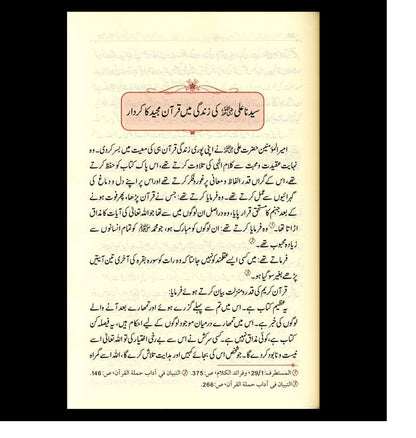 سیدنا علی رضی اللہ عنہ کی زندگی میں قرآن مجید کا کردار
امیر المؤمنین حضرت علی رضی اللہ عنہ نے اپنی پوری زندگی قرآن ہی کی معیت میں بسر کر دی۔ وہ
نہایت عقیدت و محبت سے کلام الٰہی کی تلاوت کرتے تھے، اس پاک کتاب کو حفظ کرتے
تھے، اس کے گراں قدر الفاظ و معانی پر غور و فکر کرتے تھے اور اس پر اپنے دل و دماغ کی
گہرائیوں سے عمل کرتے تھے۔ وہ فرمایا کرتے تھے: جس نے قرآن پڑھا، پھر فوت ہونے
کے بعد جہنم کا مستحق قرار پایا، وہ دراصل ان لوگوں میں سے تھا جو اللہ تعالیٰ کی آیات کا مذاق
اڑاتا تھا۔ وہ فرمایا کرتے تھے: ان لوگوں کو مبارک ہو، جو محمد ﷺ کو تمام انسانوں سے
زیادہ محبوب تھے۔
فرماتے تھے: میں کسی ایسے عقلمند کو نہیں جانتا کہ وہ رات کو سورہ بقرہ کی آخری تین آیتیں
پڑھے بغیر سو گیا ہو۔
قرآن کریم کی قدر و منزلت بیان کرتے ہوئے فرمایا:
یہ عظیم کتاب ہے۔ اس میں تم سے پہلے گزرے ہوئے اور تمھارے بعد آنے والے
لوگوں کی خبر ہے۔ اس میں تمھارے درمیان موجود لوگوں کے لیے احکام ہیں، یہ فیصلہ کن
کتاب ہے، کوئی مذاق نہیں ہے۔ کسی سرکش نے اس سے بے رغبتی اختیار کی تو اللہ تعالیٰ اسے
نیست و نابود کر دے گا۔ جو شخص اس کی بجائے کہیں اور ہدایت تلاش کرے گا، اللہ اسے گمراہ
المستطرف: 29/1، وفرائد الکلام، ص: 375. التبیان فی آداب حملة القرآن، ص: 146.
التبیان فی آداب حملة القرآن، ص: 266.